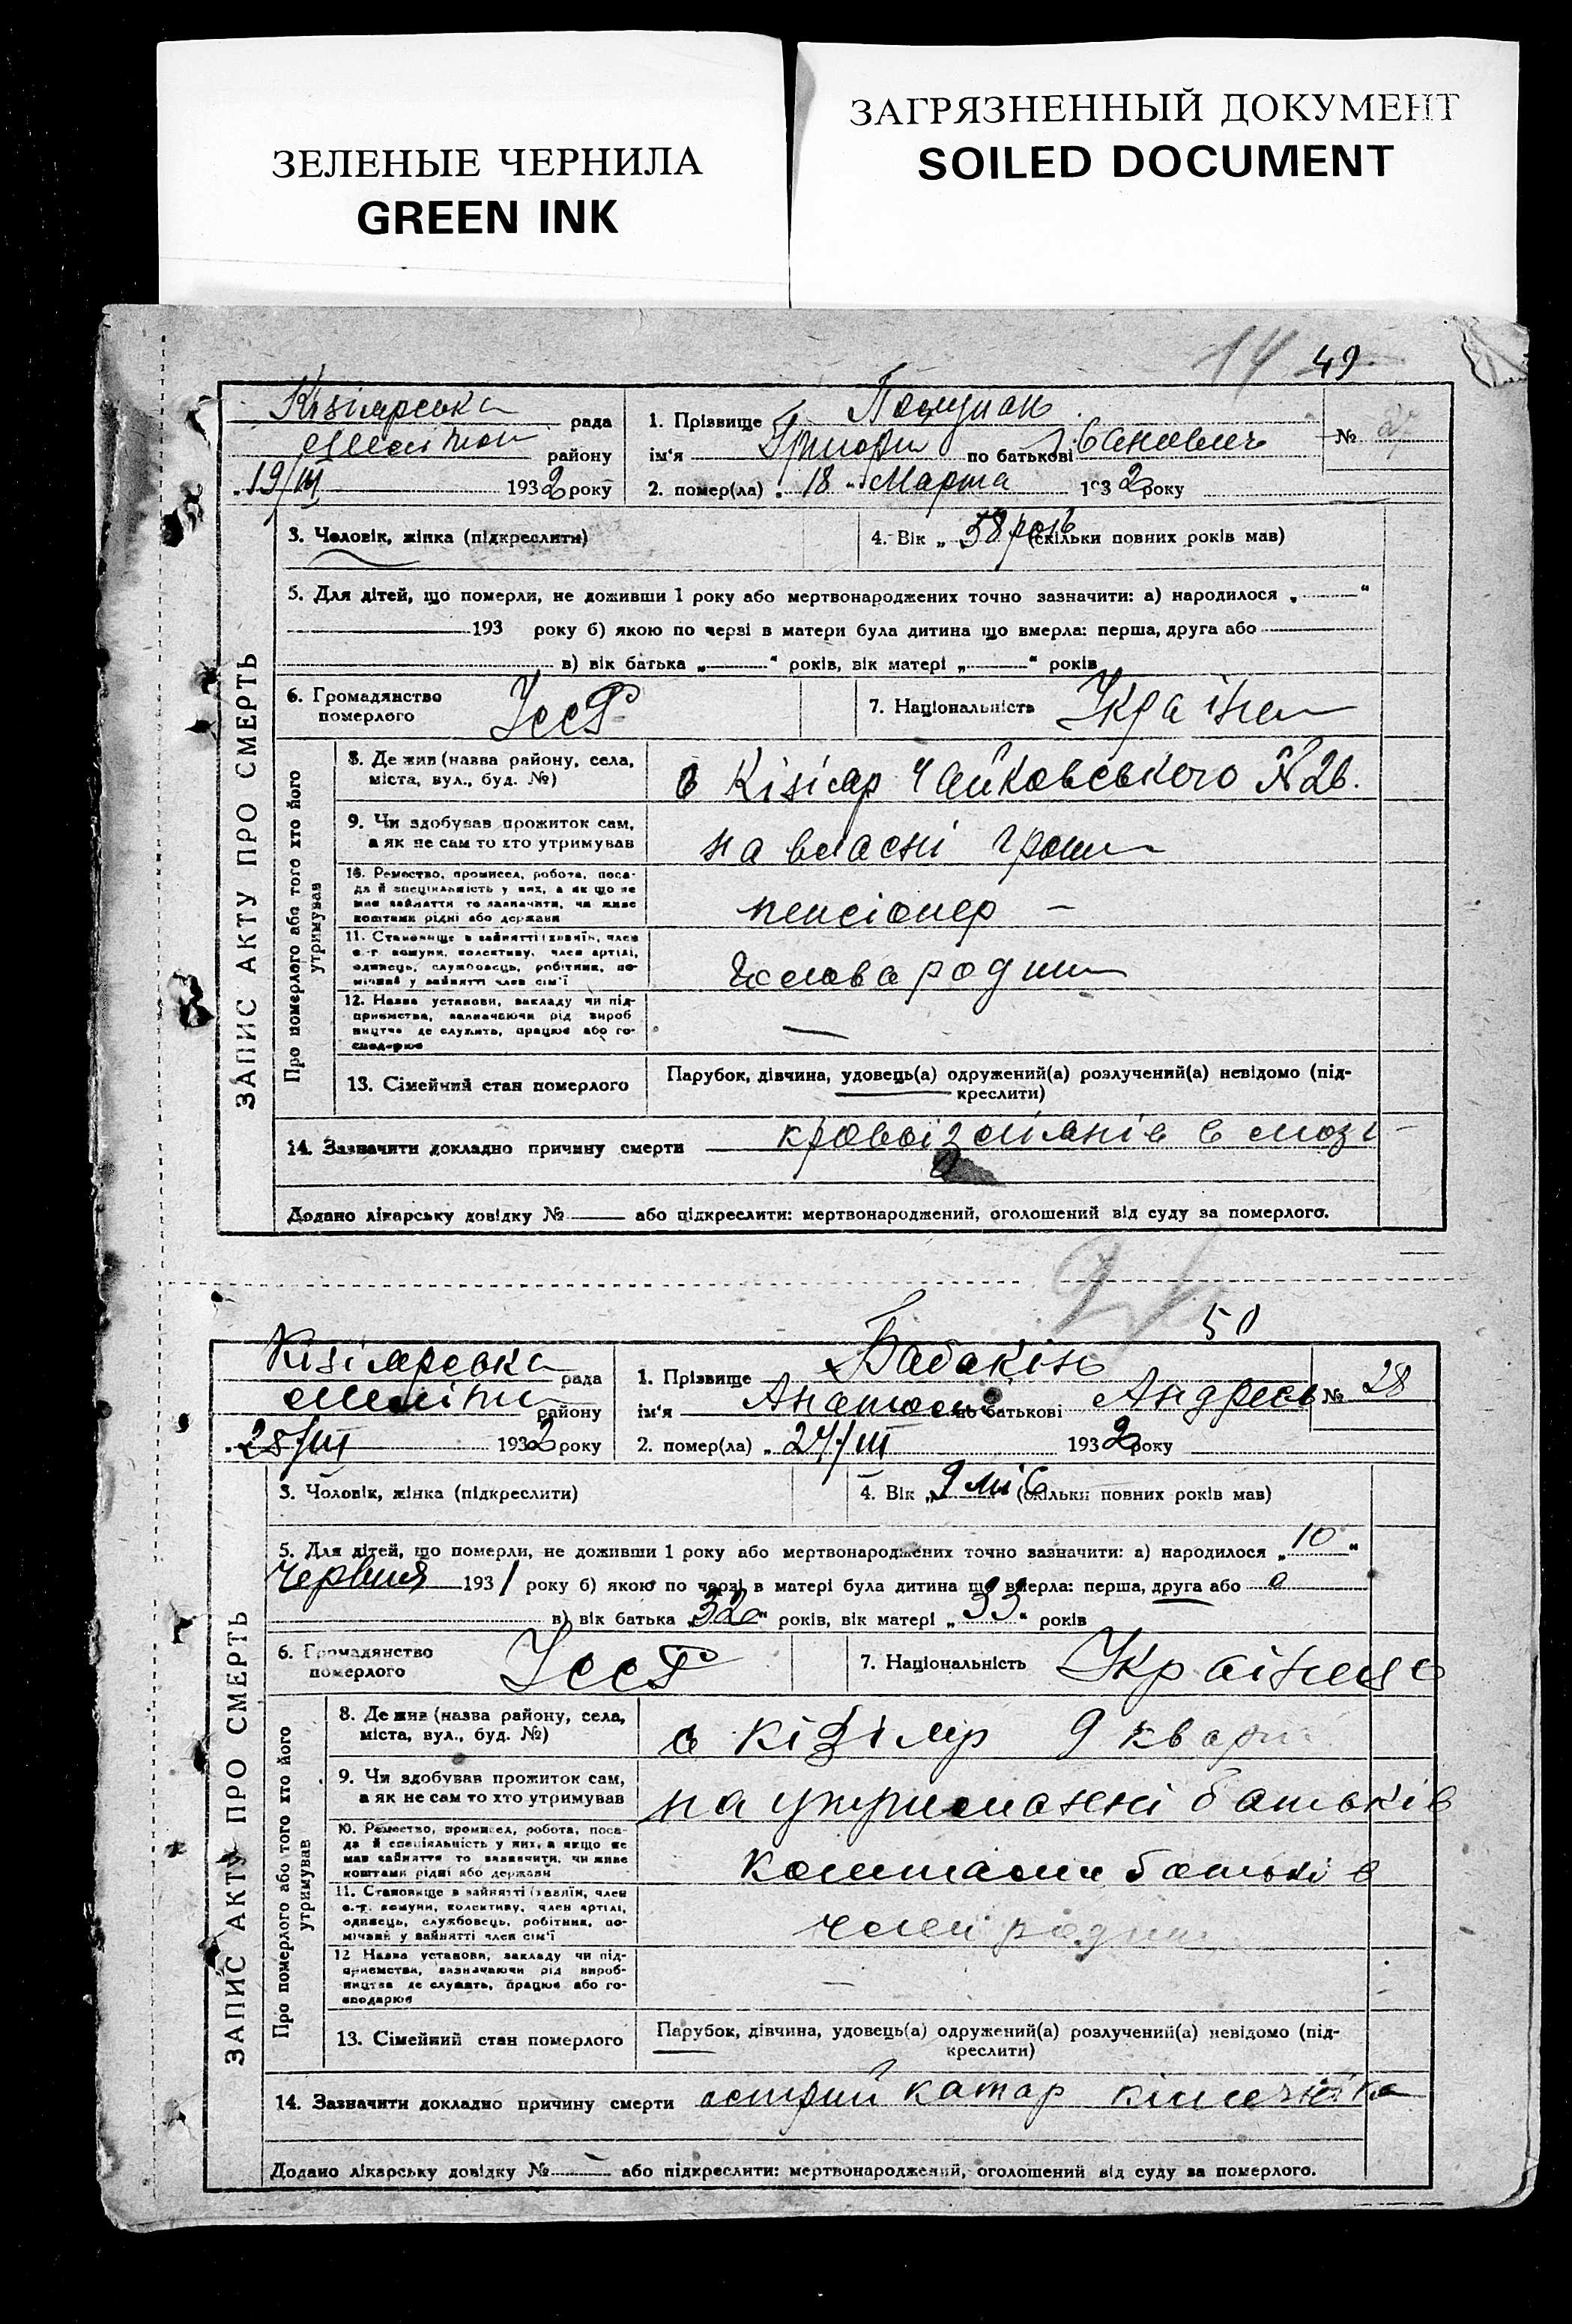 ЗЕЛЕНЫЕ ЧЕРНИЛА
GREEN INK
ЗАГРЯЗНЕННЫЙ ДОКУМЕНТ
SOILED DOCUMENT
14 49
ЗАПИС АКТУ ПРО СМЕРТЬ
Кізіярська рада
району
19/III 1932 року
1. Прізвище
ім'я Григорій по батькові Іванович
№ 27
2. помер(ла) „ 18 " Марта 1932 року
3. Чоловік, жінка (підкреслити)
4. Вік „ 58 років (скільки повних років мав)
5. Для дітей, що померли, не доживши 1 року або мертвонароджених точно зазначити: а) народилося „ "
193 року б) якою по черзі в матери була дитина що вмерла: перша, друга або
в) вік батька „ " років, вік матері „ " років
6. Громадянство померлого УССР
7. Національність Українець
Про померлого або того хто його утримував
8. Де жив (назва району, села,
міста, вул., буд. №)
с Кізіяр Чайковського № 26.
9. Чи здобував прожиток сам,
а як не сам то хто утримував
на власні гроши
10. Ремество, промисел, робота, поса-
да й спеціяльність у них, а якщо не
мав зайняття то зазначити, чи живе
коштами рідні або держави
пенсіонер –
11. Становище в зайнятті (хазяїн, член
с.-г. комуни, колективу, член артілі,
одинець, службовець, робітник, по-
мічний у зайнятті член сім'ї
голова родини
12. Назва установи, закладу чи під-
приємства, зазначаючи рід вироб
ництва де служить, працює або го-
сподарює
–
13. Сімейний стан померлого
Парубок, дівчина, удовець(а) одружений(а) розлучений(а) невідомо (під-
креслити)
14. Зазначити докладно причину смерти в мозг
Додано лікарську довідку № — або підкреслити: мертвонароджений, оголошений від суду за померлого.
50
ЗАПИС АКТУ ПРО СМЕРТЬ
Кізіярська рада
району
28/III 1932 року
1. Прізвище Бабакін
ім'я Анатолій по батькові Андреев
№ 28
2. помер(ла) „ 27/III 1932 року
3. Чоловік, жінка (підкреслити)
4. Вік „ 9 міс (скільки повних років мав)
5. Для дітей, що померли, не доживши 1 року або мертвонароджених точно зазначити: а) народилося „ 10 "
Червня 1931 року б) якою по черзі в матері була дитина що вмерла: перша, друга або
в) вік батька „ 32 " років, вік матері „ 33 " років
6. Громадянство померлого УССР
7. Національність Українець
Про померлого або того хто його утримував
8. Де жив (назва району, села,
міста, вул., буд. №)
с Кізіяр 9 кварт
9. Чи здобував прожиток сам,
а як не сам то хто утримував
на утриманні батьків
10. Ремество, промисел, робота, поса-
да й спеціяльність у них, а якщо не
мав зайняття то зазначити, чи живе
коштами рідні або держави
коштами батьків
11. Становище в зайнятті (хазяїн, член
с.-г. комуни, колективу, член артілі,
одинець, службовець, робітник, по-
мічний у зайнятті член сім'ї
член родини
12 Назва установи, закладу чи під-
приємства, зазначаючи рід вироб-
ництва де служить, працює або го-
сподарює
–
13. Сімейний стан померлого
Парубок, дівчина, удовець(а) одружений(а) розлучений(а) невідомо (під-
креслити)
14. Зазначити докладно причину смерти острий катар кишечника
Додано лікарську довідку № — або підкреслити: мертвонароджений, оголошений від суду за померлого.